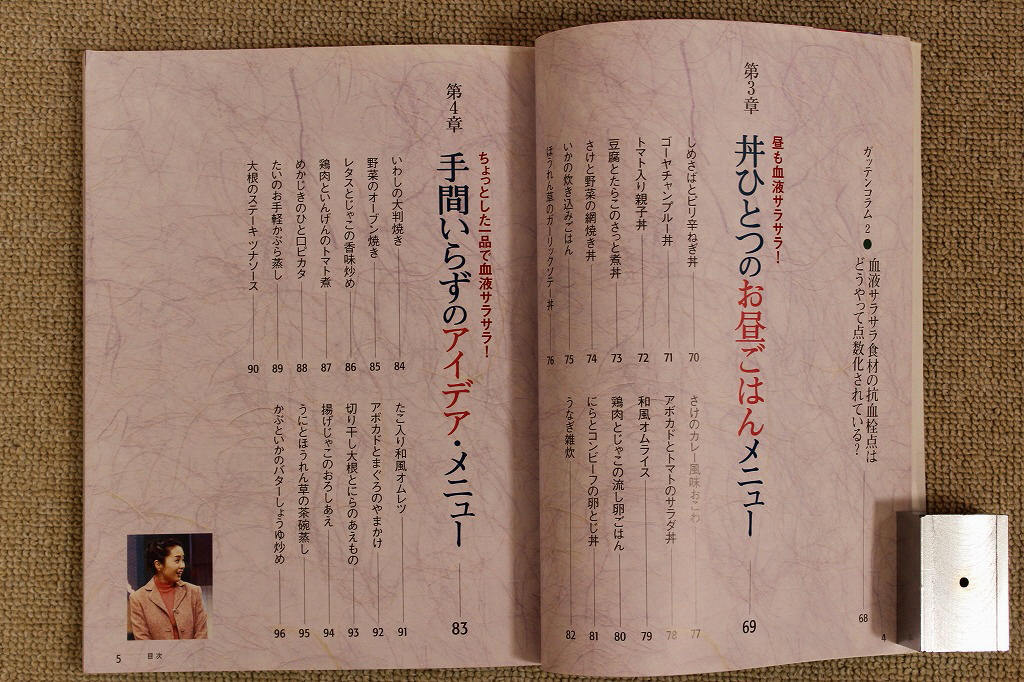 ガッテンコラム 2 ● 血液サラサラ食材の抗血栓点は
どうやって点数化されている? 68
昼も血液サラサラ!
第3章 丼ひとつのお昼ごはんメニュー 69
しめさばとピリ辛ねぎ丼 70
ゴーヤチャンプルー丼 71
トマト入り親子丼 72
豆腐とたらこのさっと煮丼 73
さけと野菜の網焼き丼 74
いかの炊き込みごはん 75
ほうれん草のガーリックソテー丼 76
さけのカレー風味おこわ 77
アボカドとトマトのサラダ丼 78
和風オムライス 79
鶏肉とじゃこの流し卵ごはん 80
にらとコンビーフの卵とじ丼 81
うなぎ雑炊 82
4
ちょっとした一品で血液サラサラ!
第4章 手間いらずのアイデア・メニュー 83
いわしの大判焼き 84
野菜のオーブン焼き 85
レタスとじゃこの香味炒め 86
鶏肉といんげんのトマト煮 87
めかじきのひと口ピカタ 88
たいのお手軽かぶら蒸し 89
大根のステーキ ツナソース 90
たこ入り和風オムレツ 91
アボカドとまぐろのやまかけ 92
切り干し大根とにらのあえもの 93
揚げじゃこのおろしあえ 94
うにとほうれん草の茶碗蒸し 95
かぶといかのバターしょうゆ炒め 96
5 目次